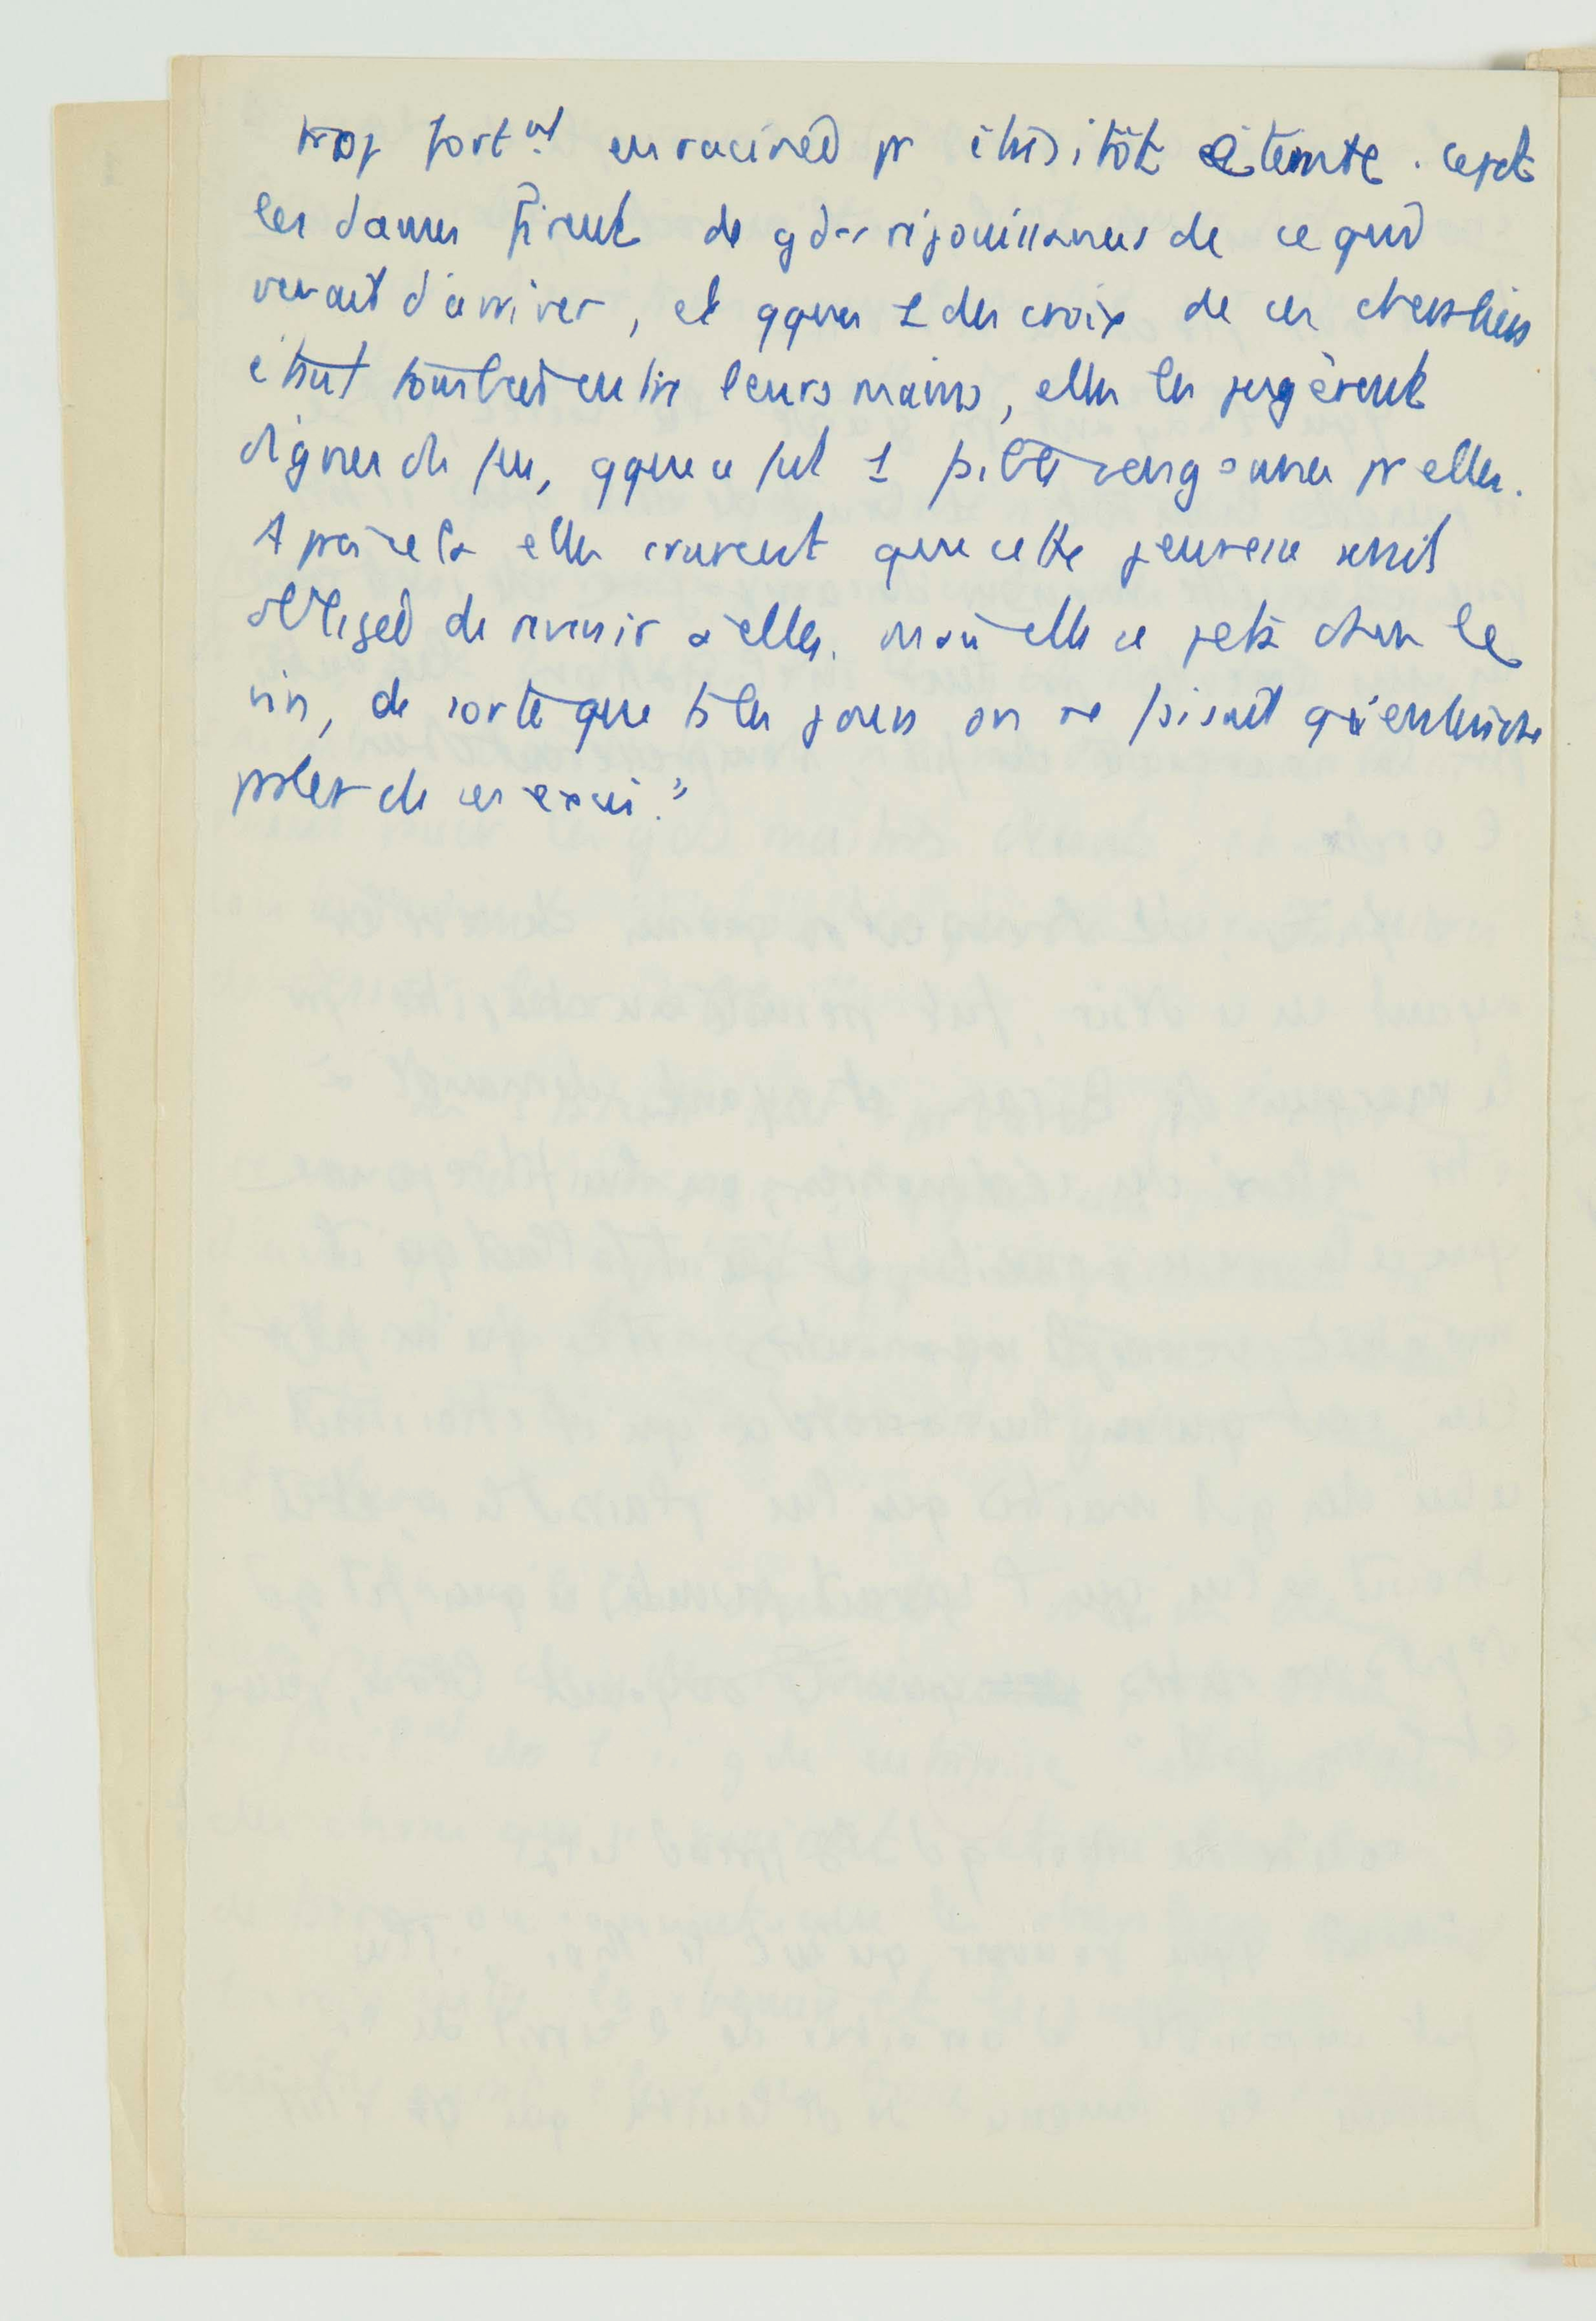 trop fort.nt enracinée pr être sitôt éteinte. cepdt
les dames firent de gdes réjouissances de ce qui
venait d'arriver, et qques 1 des croix de ces chevaliers
étant tombées entre leurs mains, elles les jugèrent
dignes du feu, qque ce fut 1 faible vengeance pr elles.
Après cela elles crurent que cette jeunesse serait
obligée de revenir à elles. mais elle se jeta dans le
vin, de sorte que ts les jours on ne faisait qu'entendre
parler de ces excès."